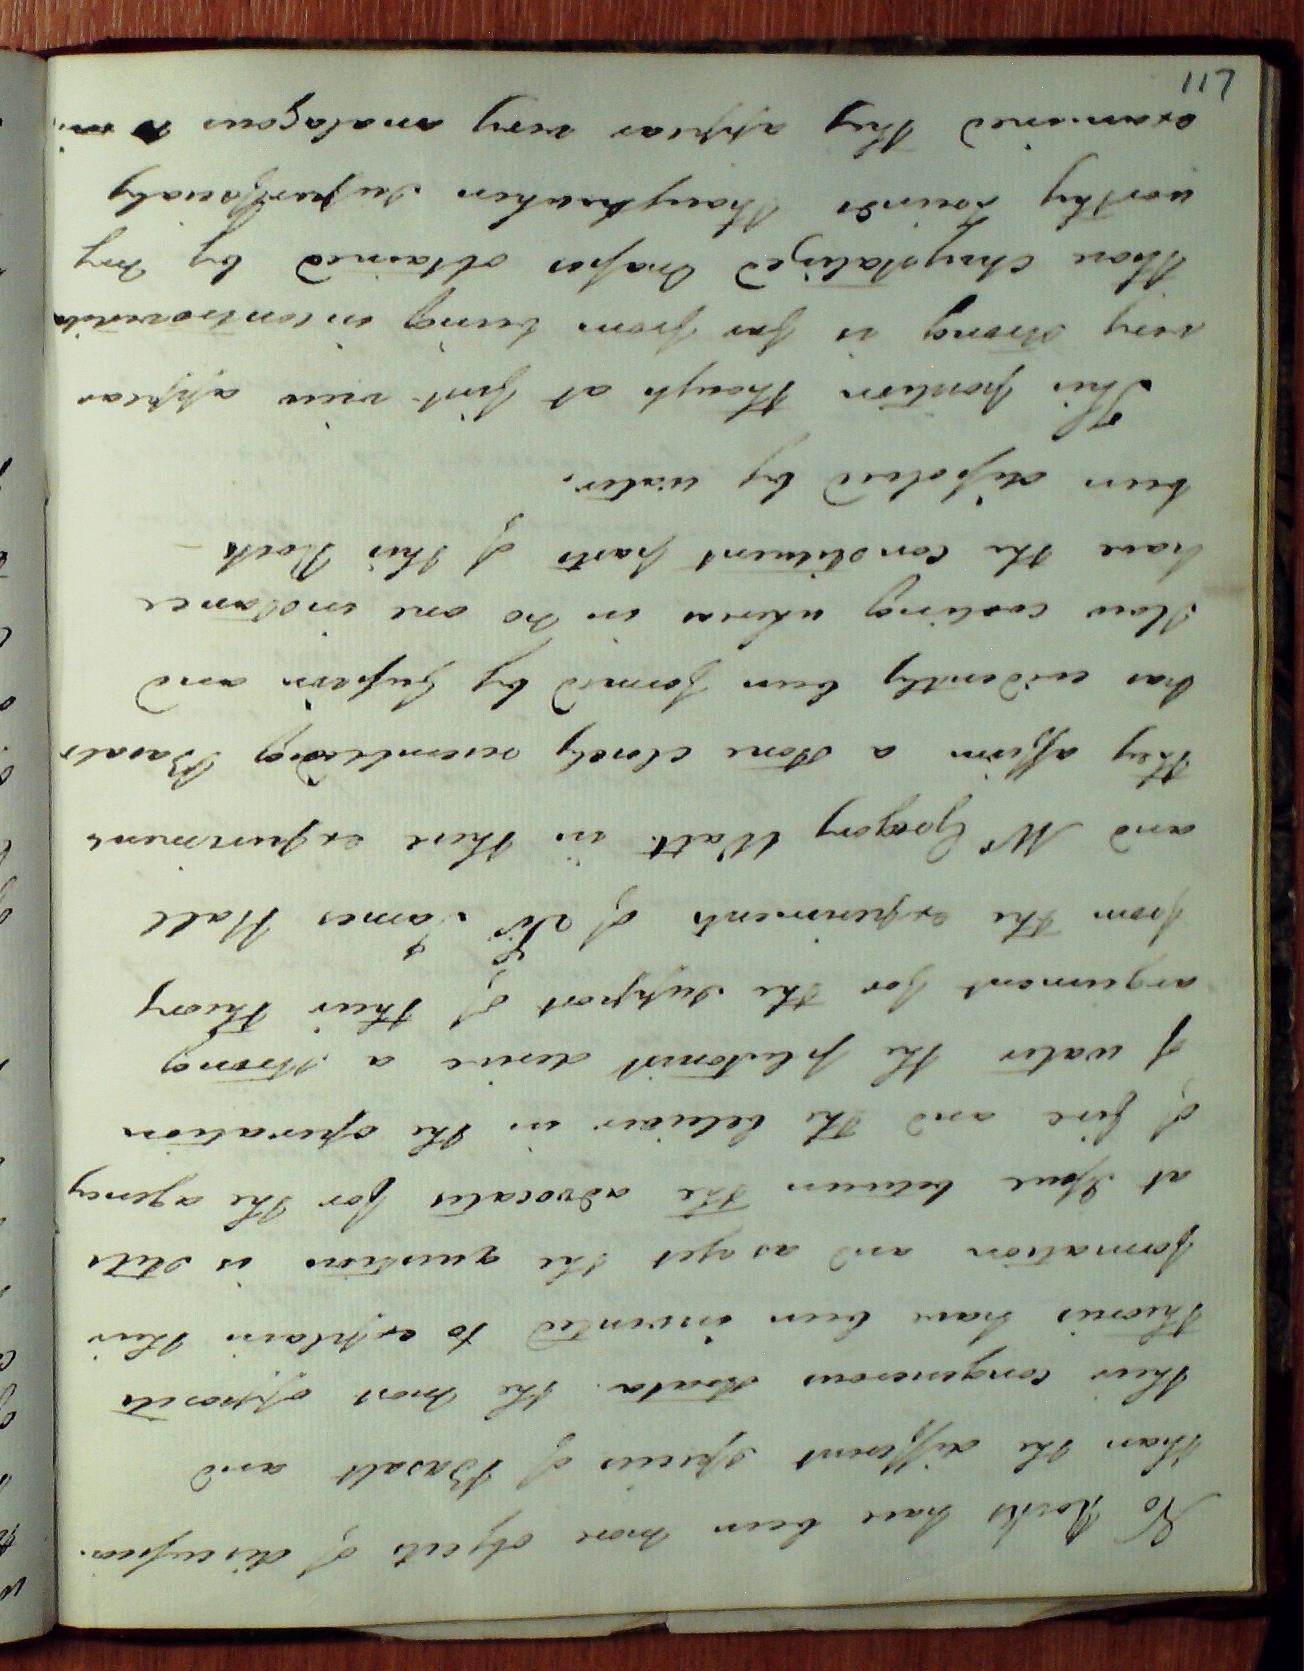 No Rocks have been more objects of discussion.
than the different species of Basalt and
their congenerous strata. The most opposite
theories have been invented to explain their
formation and as yet the question is still
at Issue between the advocates for the agency
of fire and the believer in the operation
of water the plutonist derive a strong
argument for the support of their Theory
from the experiments of Sir James Hall
and Mr Gregory Watt. in there experiments
they affirm a stone closely resembling Basalt
has evidently been formed by fusion and
slow cooling whereas in no one instance
have the constituent parts of this Rock -
been dissolved by water.
This position though at first view appear
very strong is far from being incontrovertible
those chrystalized masses obtained by my
worthy Friends though when superficialy
examined they appear very analagous to
117